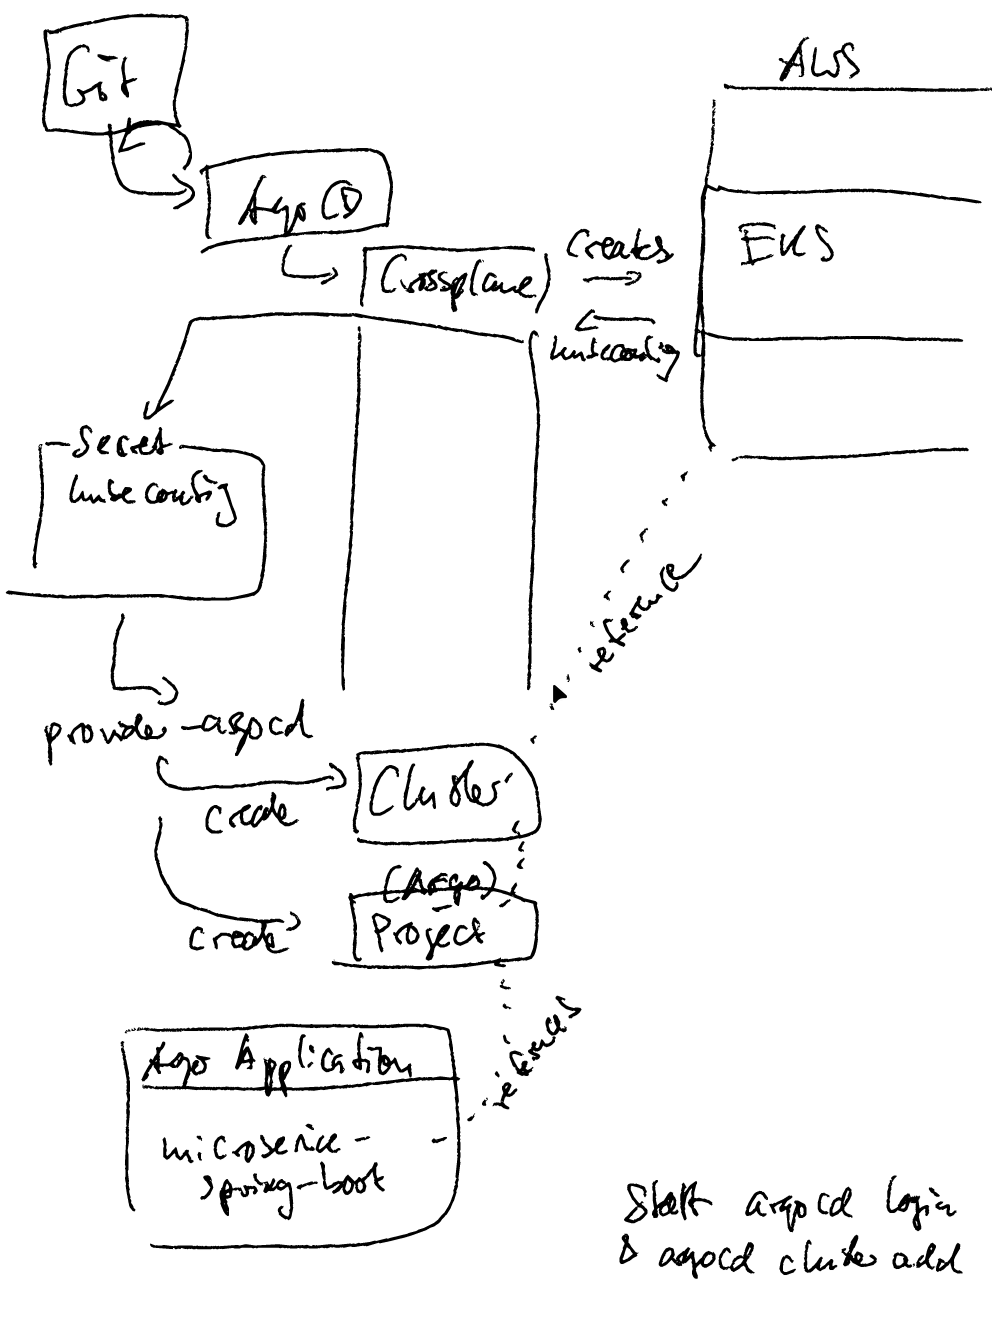 Git
AWS
Argo CD
Creates
EKS
Crossplane
kubeconfig
Secret
kubeconfig
reference
provider-argocd
create
Cluster
(Argo)
create
Project
references
Argo Application
microservice-
spring-boot
Statt argocd login
& argocd cluster add